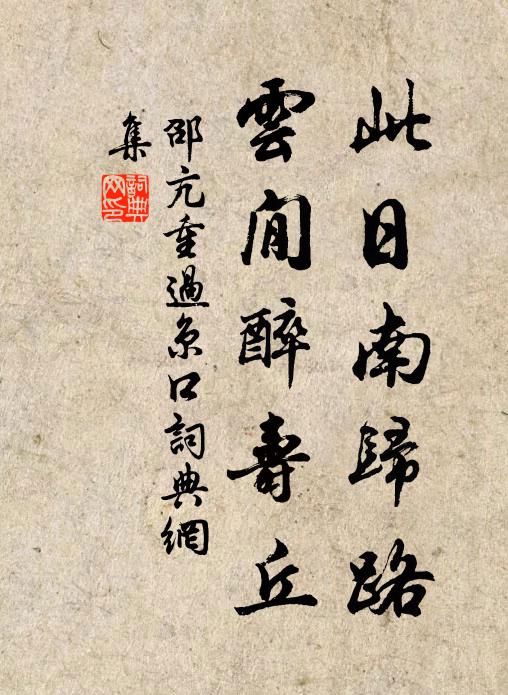 此日南歸路
雲閒醉壽丘
邵亢重過京口詞典網
集
詞典
网印